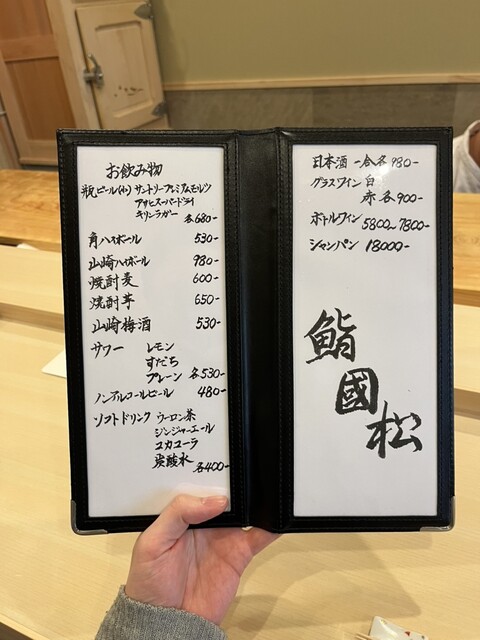 お飲み物
瓶ビール(中) サントリープレミアムモルツ
アサヒスーパードライ
キリンラガー 各680-
角ハイボール 530-
山崎ハイボール 980-
焼酎麦 600-
焼酎芋 650-
山崎梅酒 530-
サワー レモン
すだち
プレーン 各530-
ノンアルコールビール 480-
ソフトドリンク ウーロン茶
ジンジャーエール
コカコーラ
炭酸水 各400-
日本酒 一合各980-
グラスワイン 白
赤 各900-
ボトルワイン 5800~7800-
シャンパン 18000-
鮨
國
松